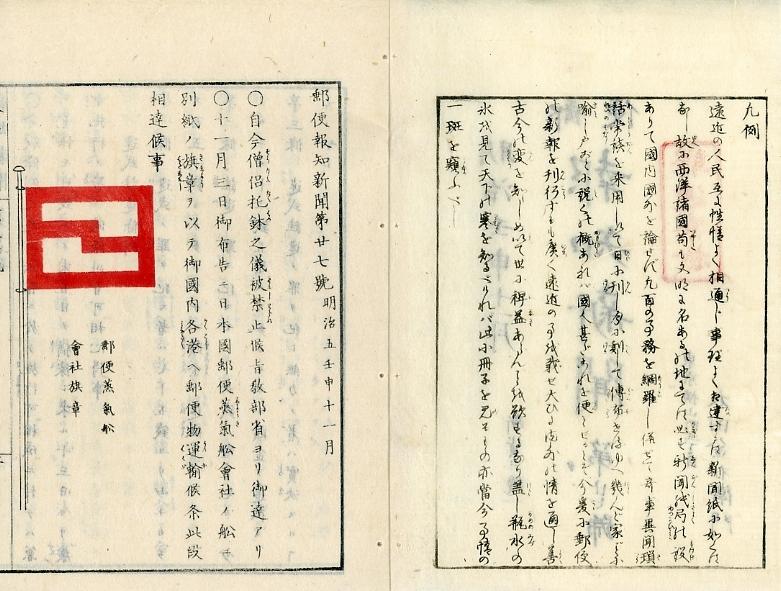 凡例
遠近の人民互に性情よく相通じ事理よく相達するは新聞紙に如くは
故に西洋諸國苟も文明に名ある地には必新聞紙局の設
ありて國内國外を論ぜず凡百の事務を網羅し併せて奇事異聞瑣
話を採用し日に刊し月に刻して傳布せるゆへ幾んど家ごとに
喩し戸ごとに説くの概あれば國人甚だこれを便とせり今爰に郵便
の新報を刊行するも廣く遠近の事を載せ大ひに内外の情を通し善
古今の変を知らしめ以て世に裨益あらんことを欲するなり蓋し瓶水の
氷を見て天下の寒を知るとあれば此小冊子を見るもの亦當今事情の
一斑を窺ふべし
郵便報知新聞第廿七號 明治五壬申十一月
〇自今僧侶托鉢之儀被禁止候旨教部省ヨリ御達アリ
〇十一月三日御布告ニ日本國郵便蒸氣舩會社ノ舩ヲ
別紙ノ旗章ヲ以テ御國内各港ヘ郵便物運輸候条此段
相達候事
郵便蒸氣舩
會社旗章